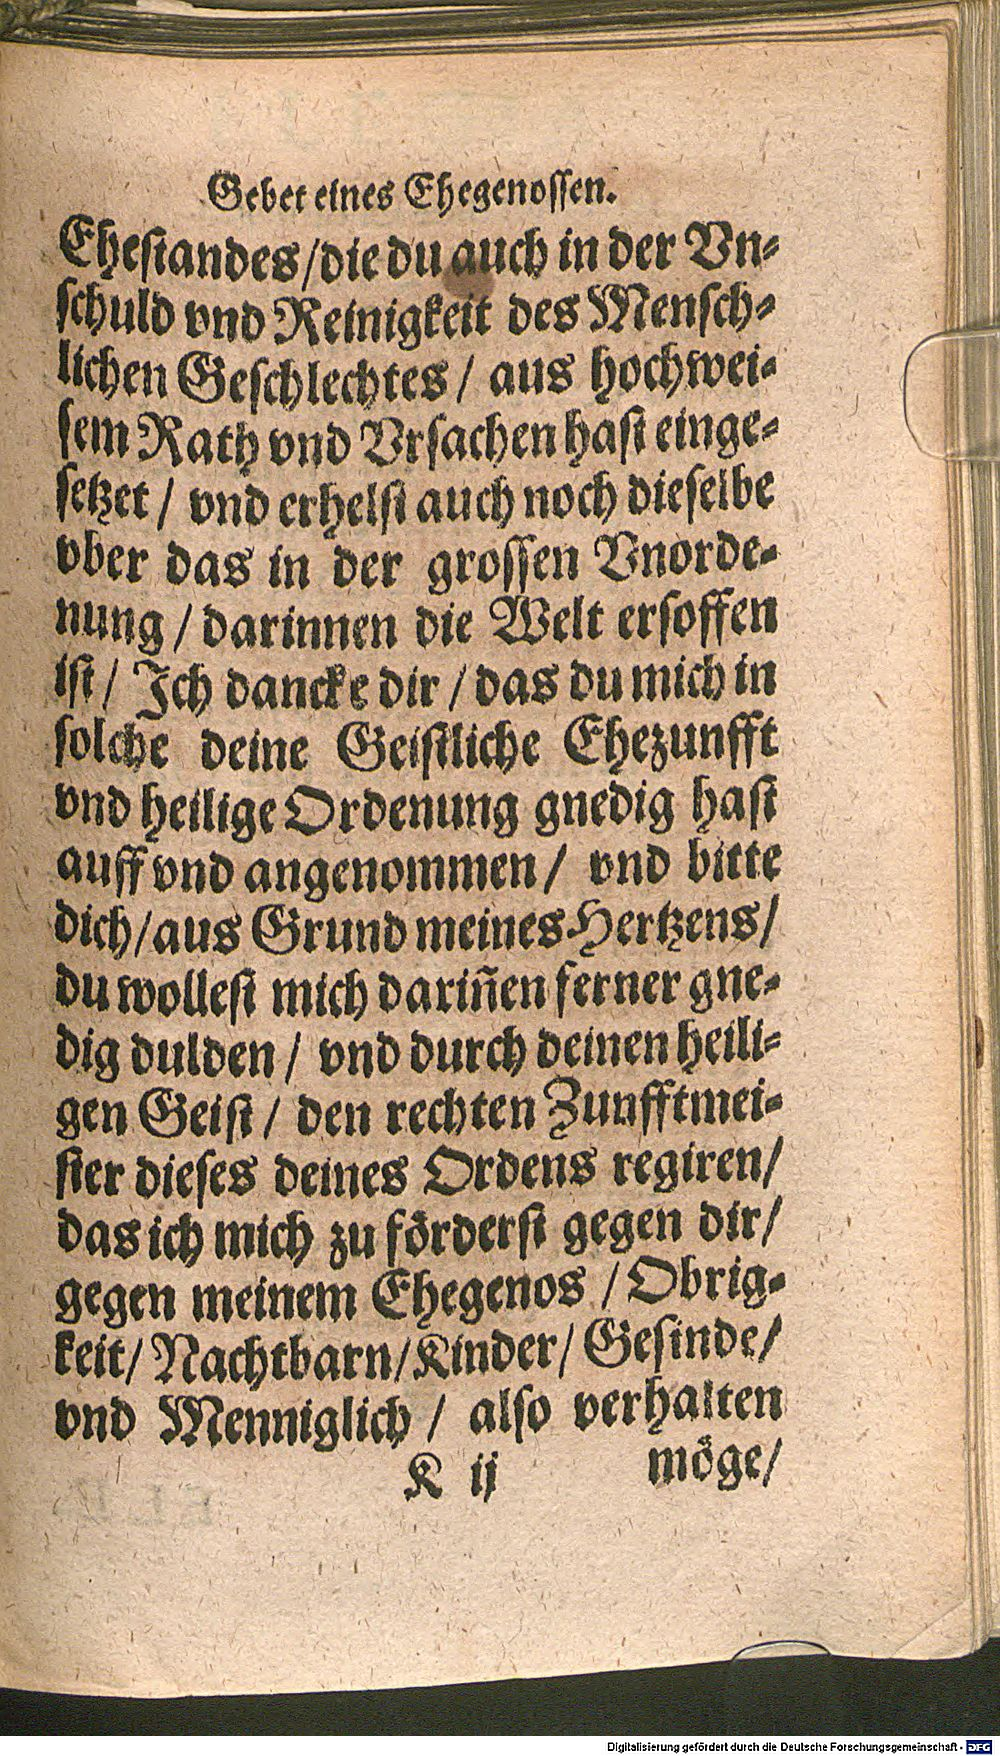 Gebet eines Ehegenossen.
Ehestandes/die du auch in der Vn-
schuld vnd Reinigkeit des Mensch-
lichen Geschlechtes / aus hochwei-
sem Rath vnd Vrsachen hast einge-
setzet / vnd erhelst auch noch dieselbe
vber das in der grossen Vnorde-
nung / darinnen die Welt ersoffen
ist / Ich dancke dir / das du mich in
solche deine Geistliche Ehezunfft
vnd heilige Ordenung gnedig hast
auff vnd angenommen / vnd bitte
dich/aus Grund meines Hertzens/
du wollest mich dariñen ferner gne-
dig dulden / vnd durch deinen heili-
gen Geist / den rechten Zunfftmei-
ster dieses deines Ordens regiren/
das ich mich zu förderst gegen dir/
gegen meinem Ehegenos / Obrig-
keit/ Nachtbarn/Kinder/ Gesinde/
vnd Menniglich / also verhalten
K ij möge/
Digitalisierung gefördert durch die Deutsche Forschungsgemeinschaft - DFG